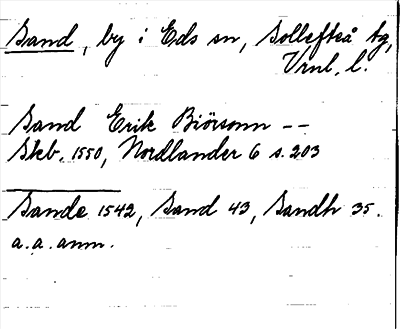 Sand, by i Eds sn, Sollefteå tg,
Vrnl. l.
Sand Erik Biörsonn --
Skb. 1550, Nordlander 6 s. 203
Sande 1542, Sand 43, Sandh 35.
a. a. anm.